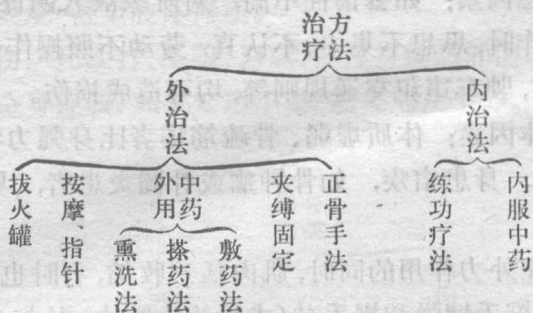 治疗方法
外治法
内治法
拔火罐
按摩、指针
外用中药
夹缚固定
正骨手法
练功疗法
内服中药
熏洗法
搽药法
敷药法